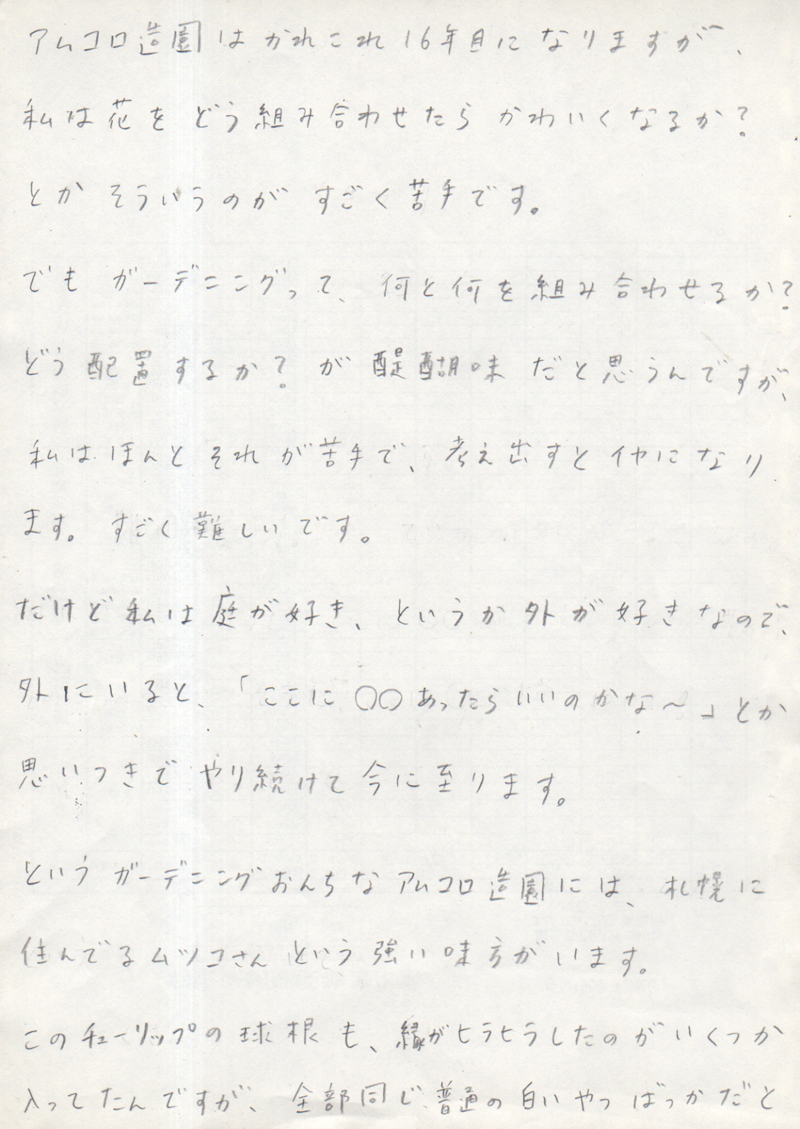 アムコロ造園はかれこれ16年目になりますが、
私は花をどう組み合わせたらかわいくなるか?
とかそういうのがすごく苦手です。
でもガーデニングって、何と何を組み合わせるか?
どう配置するか?が醍醐味だと思うんですが、
私はほんとそれが苦手で、考え出すとイヤになり
ます。すごく難しいです。
だけど私は庭が好き、というか外が好きなので、
外にいると、「ここに〇〇あったらいいのかな〜」とか
思いつきでやり続けて今に至ります。
というガーデニングおんちなアムコロ造園には、札幌に
住んでるムツコさんという強い味方がいます。
このチューリップの球根も、縁がヒラヒラしたのがいくつか
入ってたんですが、全部同じ普通の白いやつばっかだと